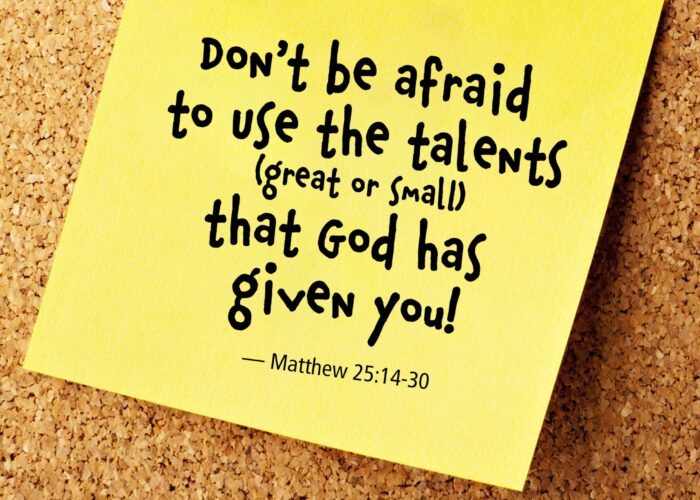 Don't be afraid
to use the talents
(great or small)
that God has
given you!
— Matthew 25:14-30